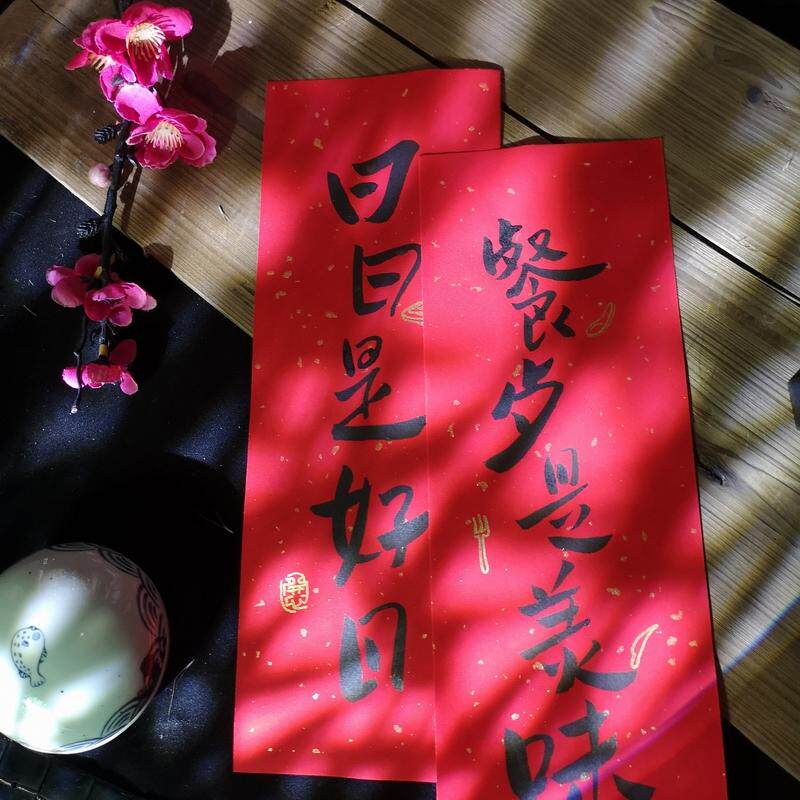 日日是好日
餐歺是美味